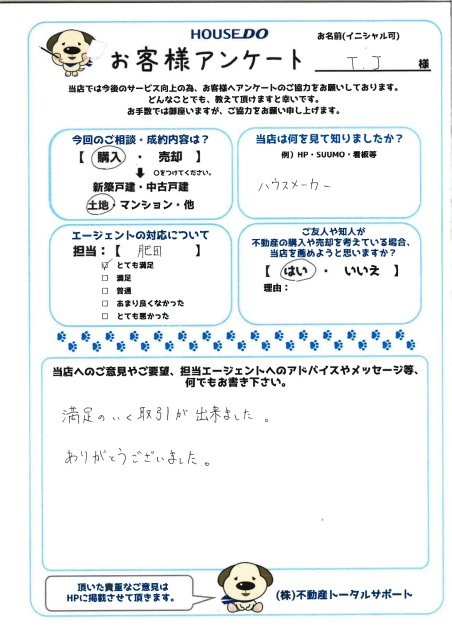 HOUSEDO
お客様アンケート
お名前(イニシャル可)
T.J 様
当店では今後のサービス向上の為、お客様へアンケートのご協力をお願いしております。
どんなことでも、教えて頂けますと幸いです。
お手数では御座いますが、ご協力をお願い申し上げます。
今回のご相談・成約内容は?
【 購入 ・ 売却 】
○をつけてください。
新築戸建・中古戸建
土地・マンション・他
当店は何を見て知りましたか?
例）HP・SUUMO・看板等
ハウスメーカー
エージェントの対応について
担当：【 肥田 】
☑ とても満足
□ 満足
□ 普通
□ あまり良くなかった
□ とても悪かった
ご友人や知人が
不動産の購入や売却を考えている場合、
当店を薦めようと思いますか?
【 はい ・ いいえ 】
理由：
当店へのご意見やご要望、担当エージェントへのアドバイスやメッセージ等、
何でもお書き下さい。
満足のいく取引が出来ました。
ありがとうございました。
頂いた貴重なご意見は
HPに掲載させて頂きます。
(株)不動産トータルサポート